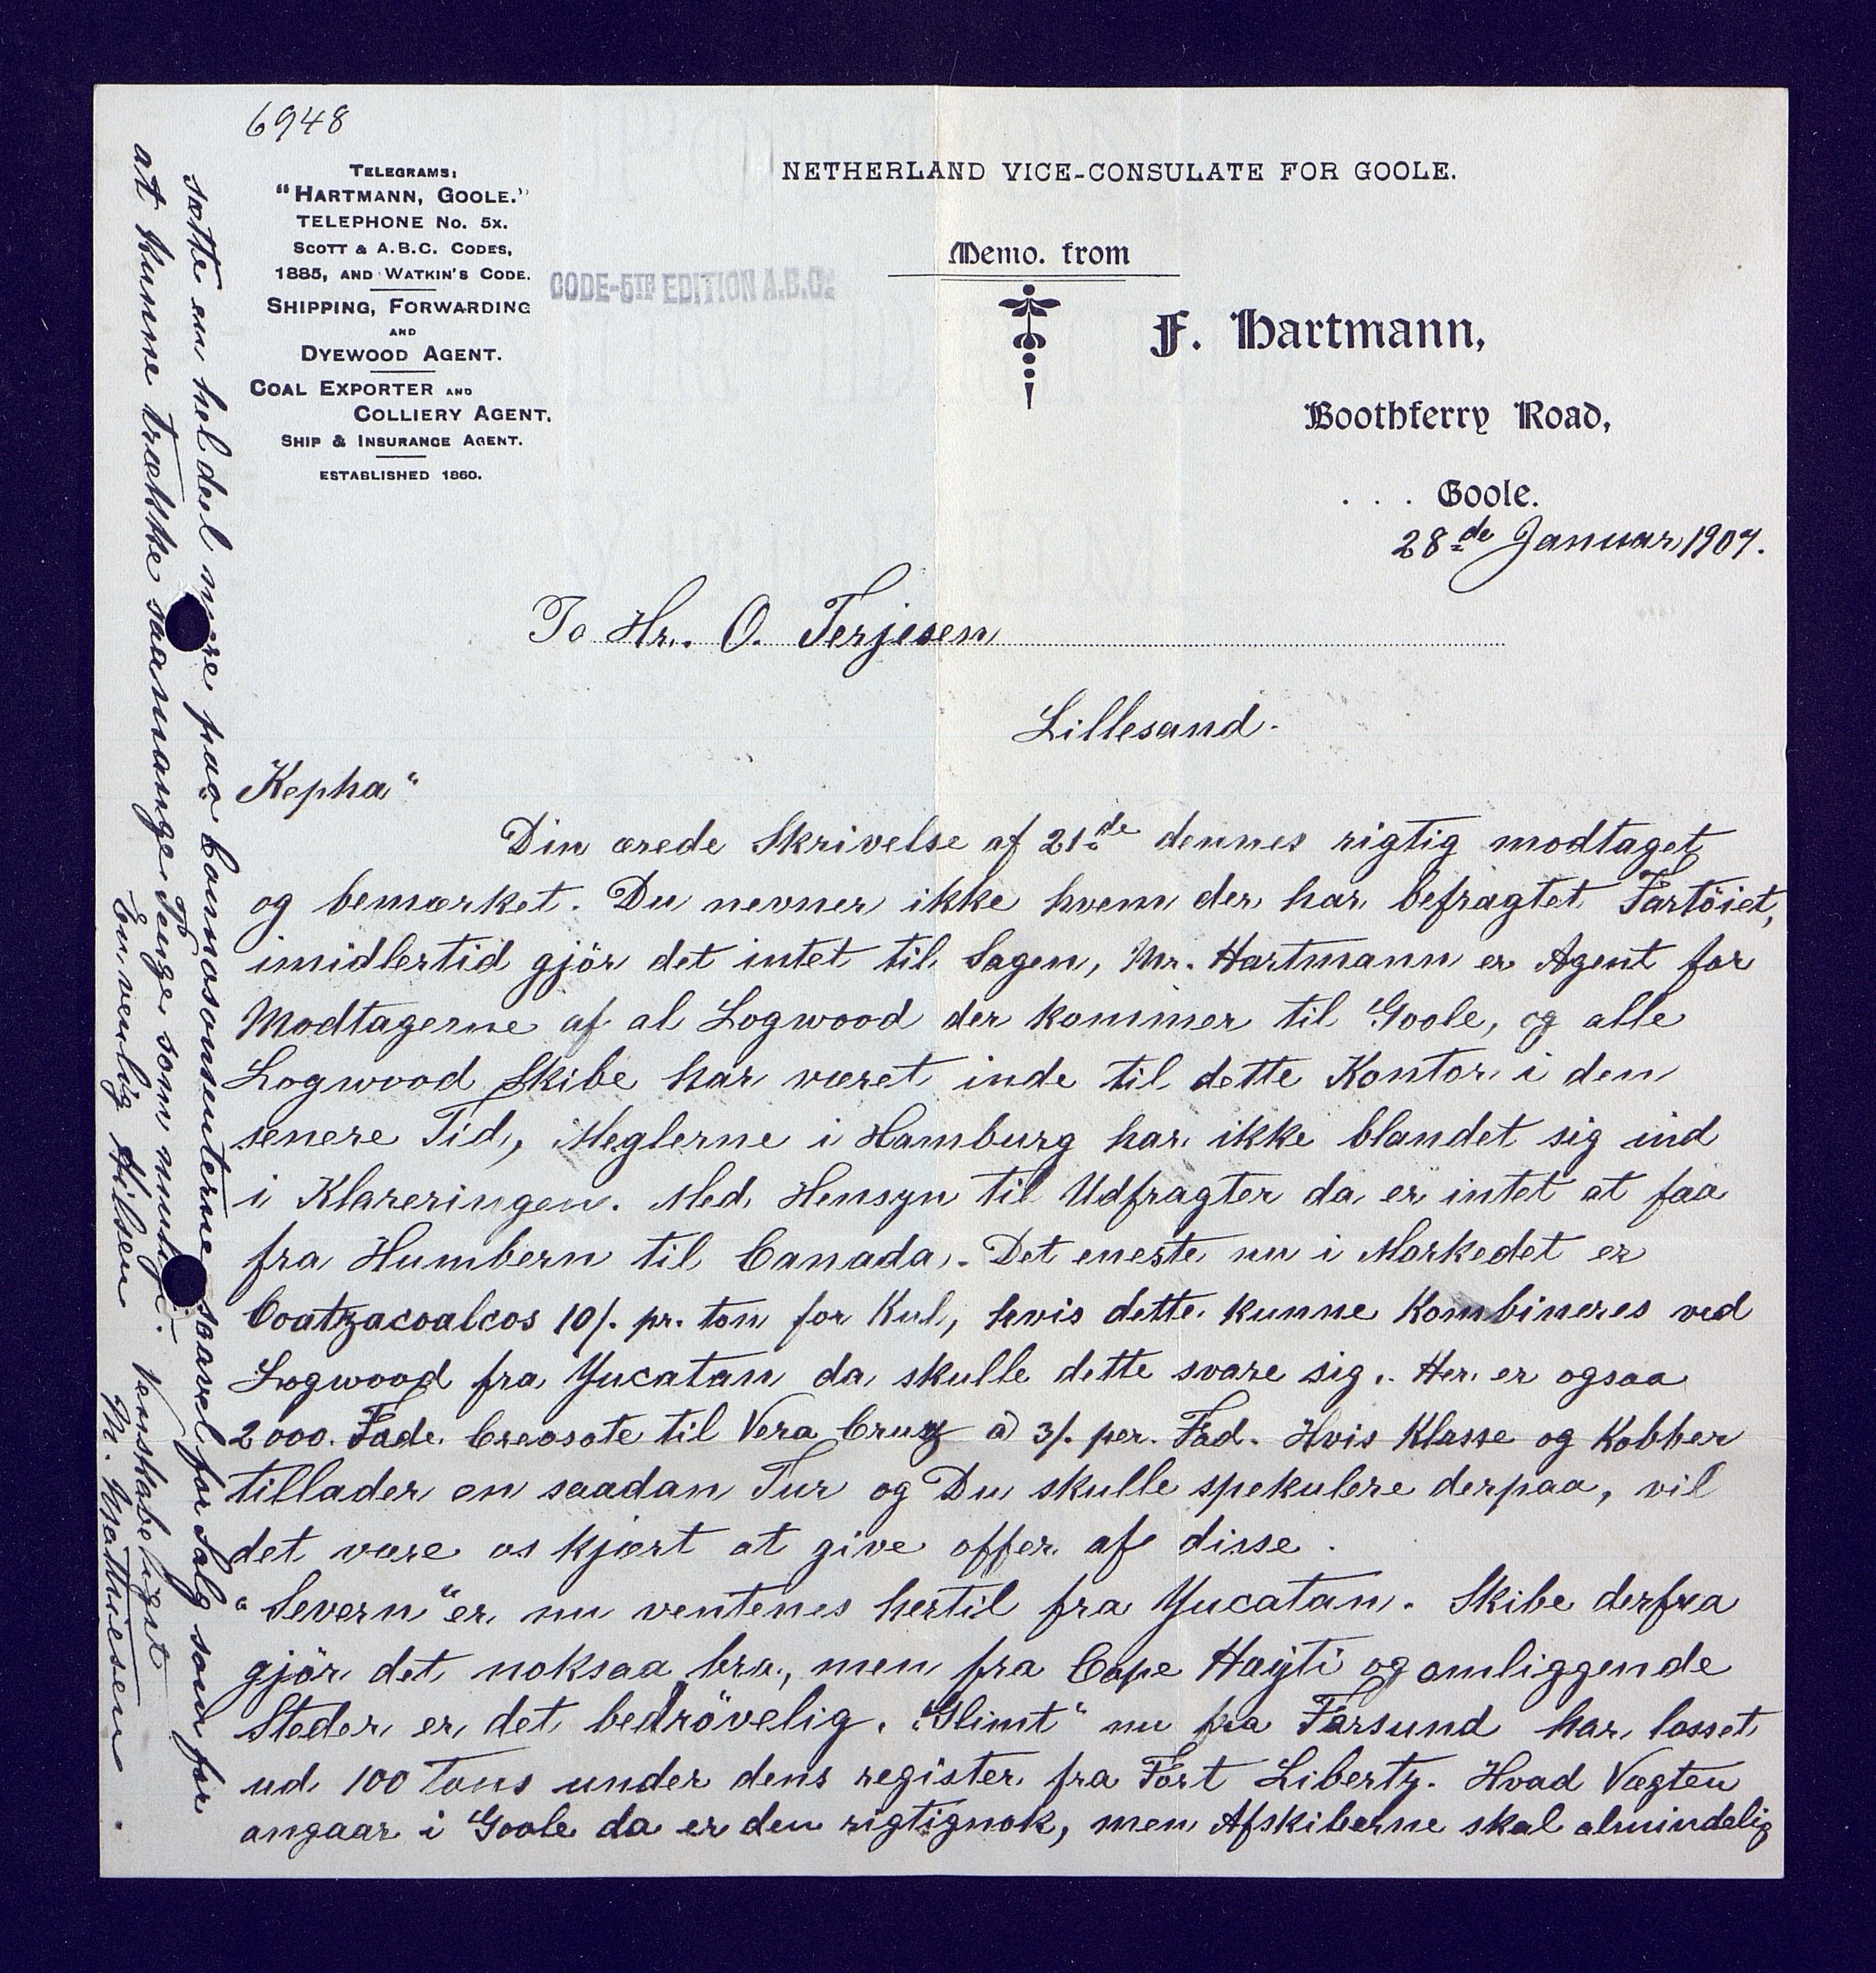 6948
TELEGRAMS:
"HARTMANN, GOOLE."
TELEPHONE No. 5x.
SCOTT & A.B.C. CODES,
1885, AND WATKIN'S CODE.
SHIPPING, FORWARDING
AND
DYEWOOD AGENT.
COAL EXPORTER AND
COLLIERY AGENT.
SHIP & INSURANCE AGENT.
ESTABLISHED 1860.
CODE-5TH EDITION A.B.C.
NETHERLAND VICE-CONSULATE FOR GOOLE.
Memo. from
F. Hartmann,
Boothferry Road,
. . . Goole.
28de Januar 1907.
To Hr. O. Terjesen
Lillesand.
"Kepha"
Din ærede Skrivelse af 21de dennes rigtig modtaget
og bemærket. Du nevner ikke hvem der har befragtet Fartöiet,
imidlertid gjör det intet til Sagen, Mr. Hartmann er Agent for
Modtagerne af al Logwood der kommer til Goole, og alle
Logwood Skibe har været inde til dette Kontor i den
senere Tid, Meglerne i Hamburg har ikke blandet sig ind
i Klareringen. Med Hensyn til Udfragter da er intet at faa
fra Humbern til Canada. Det eneste nu i Markedet er
Coatzacoalcos 10/. pr. ton for Kul, hvis dette kunne Kombineres ved
Logwood fra Yucatan da skulle dette svare sig. Her er ogsaa
2000 Fade Creosote til Vera Cruz a 3/. per. Fad. Hvis Klasse og Kobber
tillader en saadan Tur og Du skulle spekulere derpaa, vil
det være os kjært at give offer af disse.
"Severn" er nu ventenes hertil fra Yucatan. Skibe derfra
gjör det noksaa bra, men fra Cape Hayti og omliggende
Steder er det bedrövelig. "Glimt" nu fra Farsund har losset
ud 100 Tons under dens register fra Fort Liberty. Hvad Vægten
angaar i Goole da er den rigtignok, men Afskiberne skal almindelig
sætte en hel del mere paa Connosomenterne saavel for Salg som for
at kunne trække saamange Penge som muligt.
Venskabeligst
En venlig Hilsen M. Mathiesen